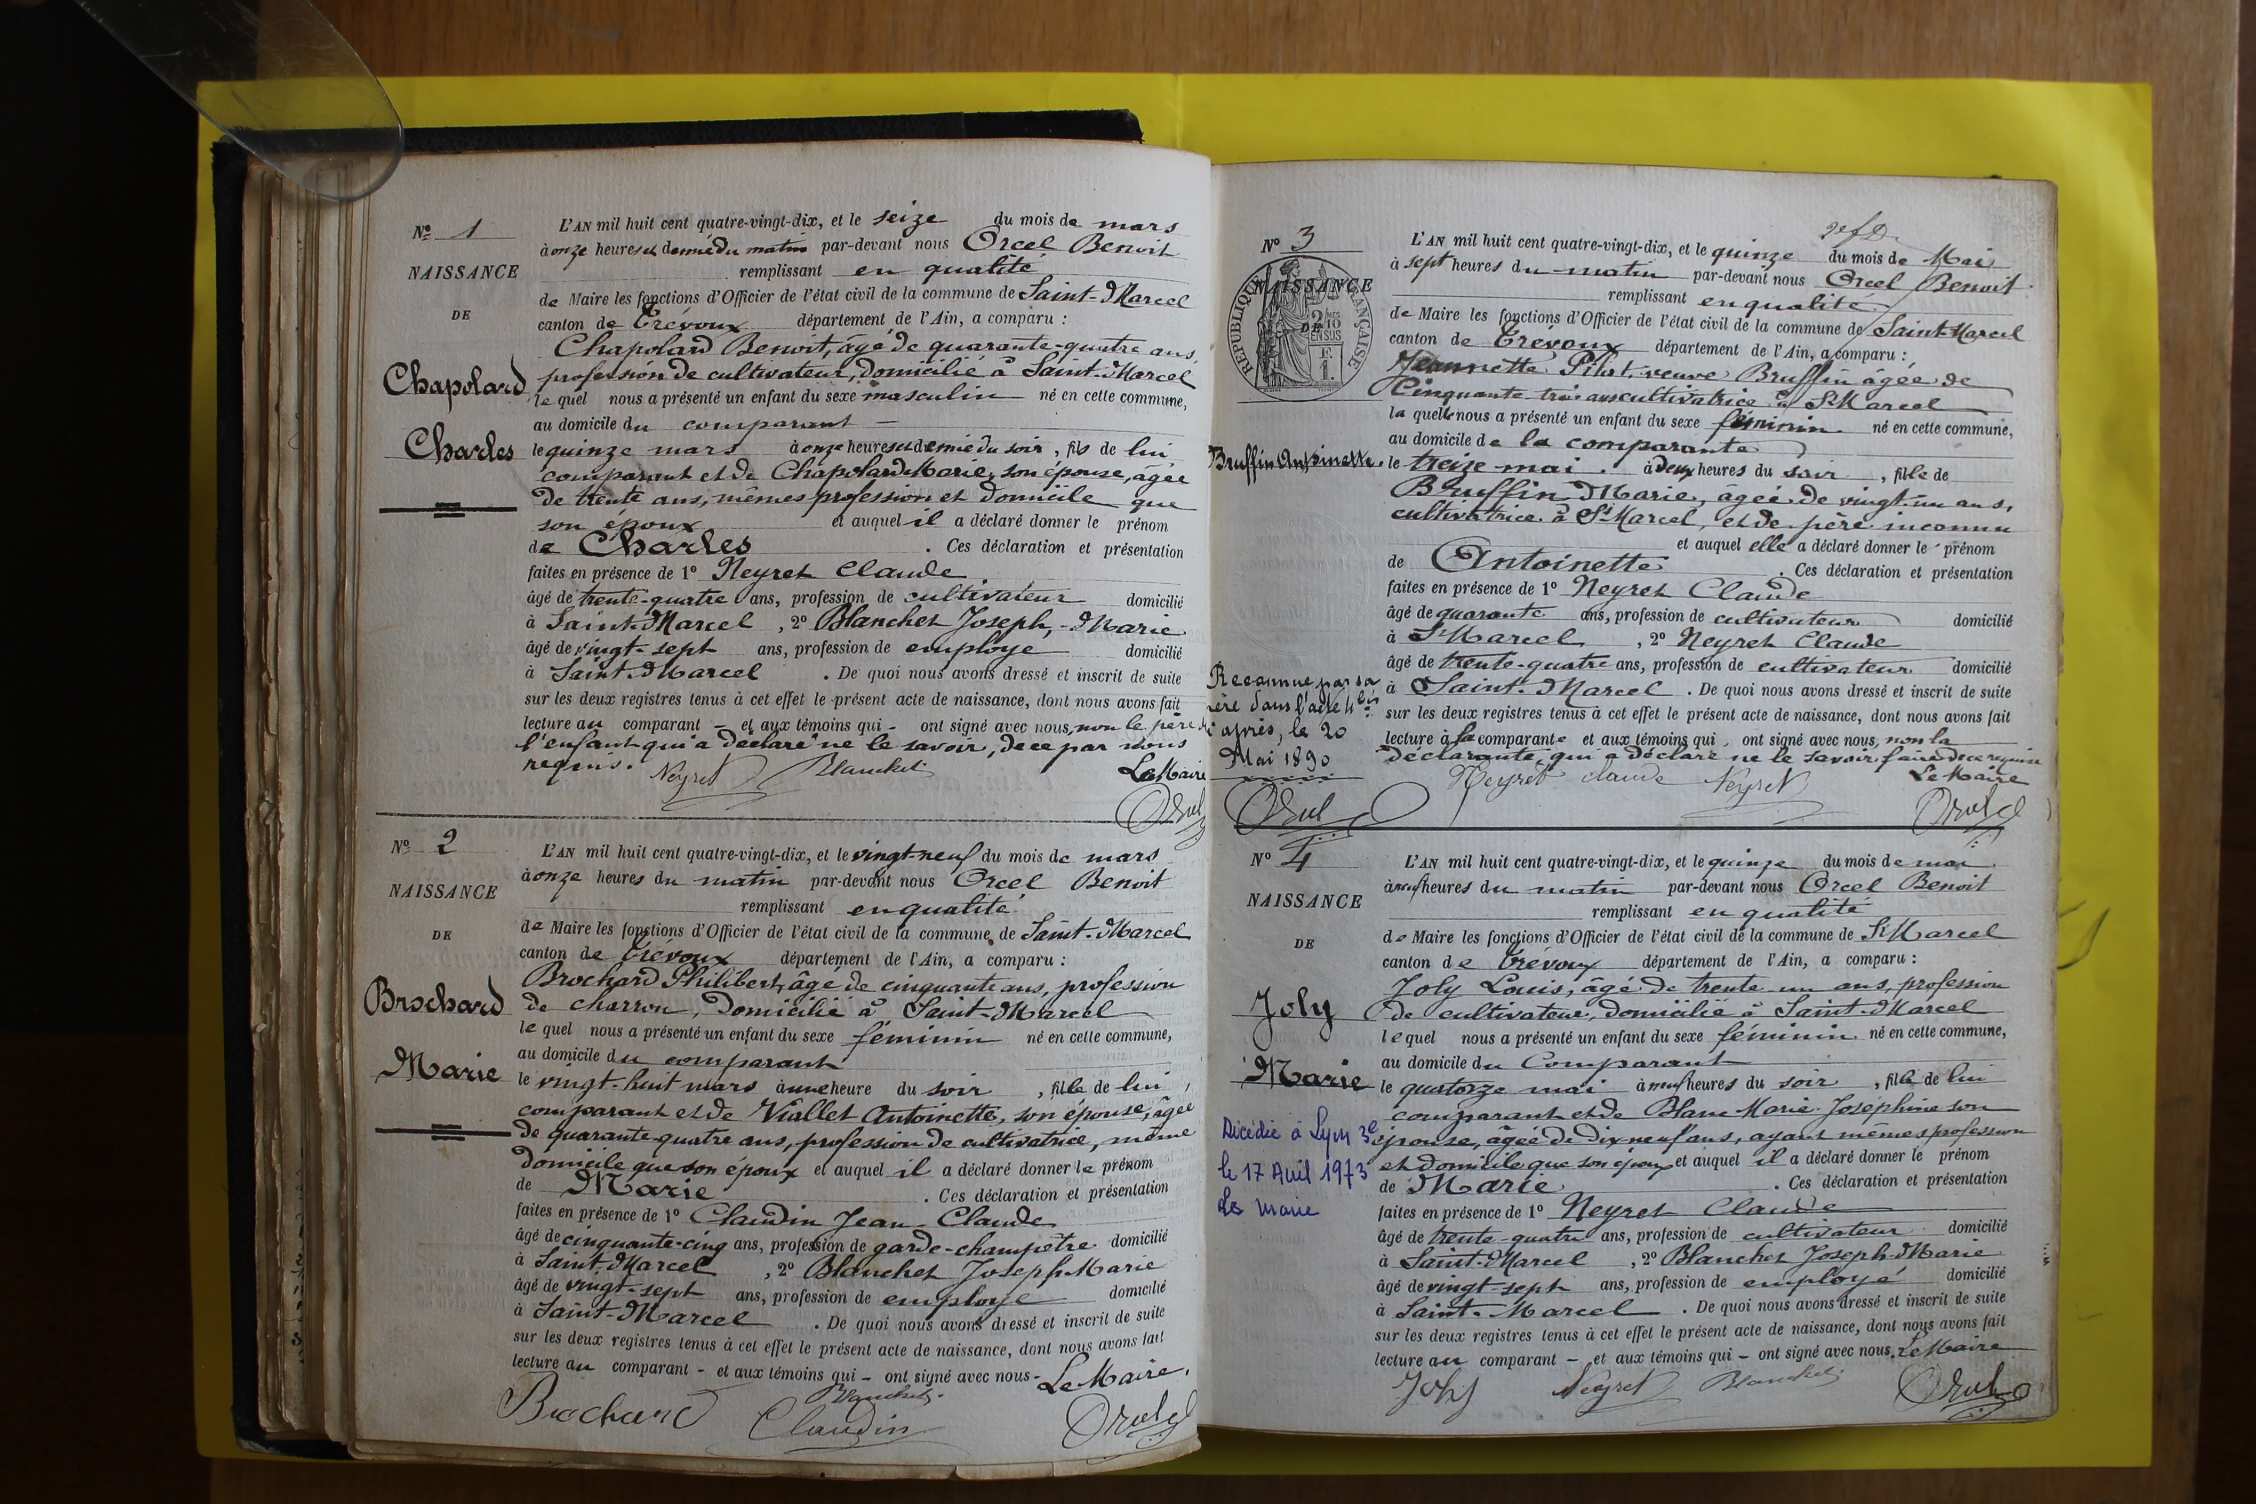 Nº 1
NAISSANCE
DE
Chapolard
Charles
L'AN mil huit cent quatre-vingt-dix, et le seize du mois de mars
à onze heures et demie du matin par-devant nous Orcel Benoit
remplissant en qualité
de Maire les fonctions d'Officier de l'état civil de la commune de Saint-Marcel
canton de Trévoux département de l'Ain, a comparu :
Chapolard Benoit, âgé de quarante-quatre ans,
profession de cultivateur, domicilié à Saint-Marcel
lequel nous a présenté un enfant du sexe masculin né en cette commune,
au domicile du comparant
le quinze mars à onze heures et demie du soir, fils de lui
comparant et de Chapolard Marie, son épouse, âgée
de trente ans, mêmes profession et domicile que
son époux et auquel il a déclaré donner le prénom
de Charles . Ces déclaration et présentation
faites en présence de 1º Neyret Claude
âgé de trente-quatre ans, profession de cultivateur domicilié
à Saint-Marcel , 2º Blanchet Joseph-Marie
âgé de vingt-sept ans, profession de employé domicilié
à Saint-Marcel . De quoi nous avons dressé et inscrit de suite
sur les deux registres tenus à cet effet le présent acte de naissance, dont nous avons fait
lecture au comparant - et aux témoins qui - ont signé avec nous, non le père de
l'enfant qui a déclaré ne le savoir, de ce par nous
requis.
Neyret Blanchet Le Maire
Orcel
Nº 2
NAISSANCE
DE
Brochard
Marie
L'AN mil huit cent quatre-vingt-dix, et le vingt-neuf du mois de mars
à onze heures du matin par-devant nous Orcel Benoit
remplissant en qualité
de Maire les fonctions d'Officier de l'état civil de la commune de Saint-Marcel
canton de Trévoux département de l'Ain, a comparu :
Brochard Philibert, âgé de cinquante ans, profession
de charron, domicilié à Saint-Marcel
lequel nous a présenté un enfant du sexe féminin né en cette commune,
au domicile du comparant
le vingt-huit mars à une heure du soir , fille de lui
comparant et de Viallet Antoinette, son épouse, âgée
de quarante-quatre ans, profession de cultivatrice, même
domicile que son époux et auquel il a déclaré donner le prénom
de Marie . Ces déclaration et présentation
faites en présence de 1º Claudin Jean-Claude
âgé de cinquante-cinq ans, profession de garde-champêtre domicilié
à Saint-Marcel , 2º Blanchet Joseph-Marie
âgé de vingt-sept ans, profession de employé domicilié
à Saint-Marcel . De quoi nous avons dressé et inscrit de suite
sur les deux registres tenus à cet effet le présent acte de naissance, dont nous avons fait
lecture au comparant - et aux témoins qui - ont signé avec nous - Le Maire,
Brochard Blanchet
Claudin Orcel
Nº 3
NAISSANCE
DE
RÉPUBLIQUE FRANÇAISE
2/10 EN SUS
Bruffin Antoinette.
Reconnue par sa
mère dans l'acte 4 bis
ci après, le 20
Mai 1890
Orcel
L'AN mil huit cent quatre-vingt-dix, et le quinze du mois de Mai
à sept heures du matin par-devant nous Orcel Benoit
remplissant en qualité
de Maire les fonctions d'Officier de l'état civil de la commune de Saint-Marcel
canton de Trévoux département de l'Ain, a comparu :
Jeannette veuve Bruffin âgée de
Cinquante trois ans cultivatrice à St Marcel
la quelle nous a présenté un enfant du sexe féminin né en cette commune,
au domicile de la comparante
le treize mai à deux heures du soir , fille de
Bruffin Marie, âgée de vingt-un ans,
cultivatrice à St Marcel, et de père inconnu
et auquel elle a déclaré donner le prénom
de Antoinette . Ces déclaration et présentation
faites en présence de 1º Neyret Claude
âgé de quarante ans, profession de cultivateur domicilié
à St Marcel , 2º Neyret Claude
âgé de trente-quatre ans, profession de cultivateur domicilié
à Saint-Marcel . De quoi nous avons dressé et inscrit de suite
sur les deux registres tenus à cet effet le présent acte de naissance, dont nous avons fait
lecture à la comparante et aux témoins qui , ont signé avec nous, non la
déclarante, qui a déclaré ne le savoir faire de ce requise
Neyret claude Neyret Le Maire
Orcel
Nº 4
NAISSANCE
DE
Joly
Marie
Décédée à Lyon 3e
le 17 Avril 1973
Le Maire
L'AN mil huit cent quatre-vingt-dix, et le quinze du mois de mai
à neuf heures du matin par-devant nous Orcel Benoit
remplissant en qualité
de Maire les fonctions d'Officier de l'état civil de la commune de St Marcel
canton de Trévoux département de l'Ain, a comparu :
Joly Louis, âgé de trente un ans, profession
de cultivateur, domicilié à Saint-Marcel
lequel nous a présenté un enfant du sexe féminin né en cette commune,
au domicile du Comparant
le quatorze mai à neuf heures du soir , fille de lui
comparant et de Blanc Marie-Joséphine son
épouse, âgée de dix neuf ans, ayant mêmes profession
et domicile que son époux et auquel il a déclaré donner le prénom
de Marie . Ces déclaration et présentation
faites en présence de 1º Neyret Claude
âgé de trente-quatre ans, profession de cultivateur domicilié
à Saint-Marcel , 2º Blanchet Joseph-Marie
âgé de vingt-sept ans, profession de employé domicilié
à Saint-Marcel . De quoi nous avons dressé et inscrit de suite
sur les deux registres tenus à cet effet le présent acte de naissance, dont nous avons fait
lecture au comparant - et aux témoins qui - ont signé avec nous. Le Maire
Joly Neyret Blanchet Orcel